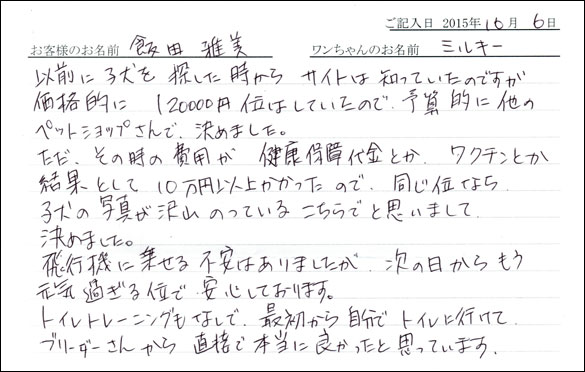 ご記入日 2015年10月6日
お客様のお名前 飯田 雅美 ワンちゃんのお名前 ミルキー
以前に子犬を探した時からサイトは知っていたのですが
価格的に 120000円位はしていたので、予算的に他の
ペットショップさんで、決めました。
ただ、その時の費用が 健康保障代金とか、ワクチンとか
結果として10万円以上かかったので、同じ位なら、
子犬の写真が沢山のっているこちらでと思いまして
決めました。
飛行機に乗せる不安はありましたが、次の日からもう
元気過ぎる位で安心しております。
トイレトレーニングもなしで、最初から自分でトイレに行けて
ブリーダーさんから直接で本当に良かったと思っています。